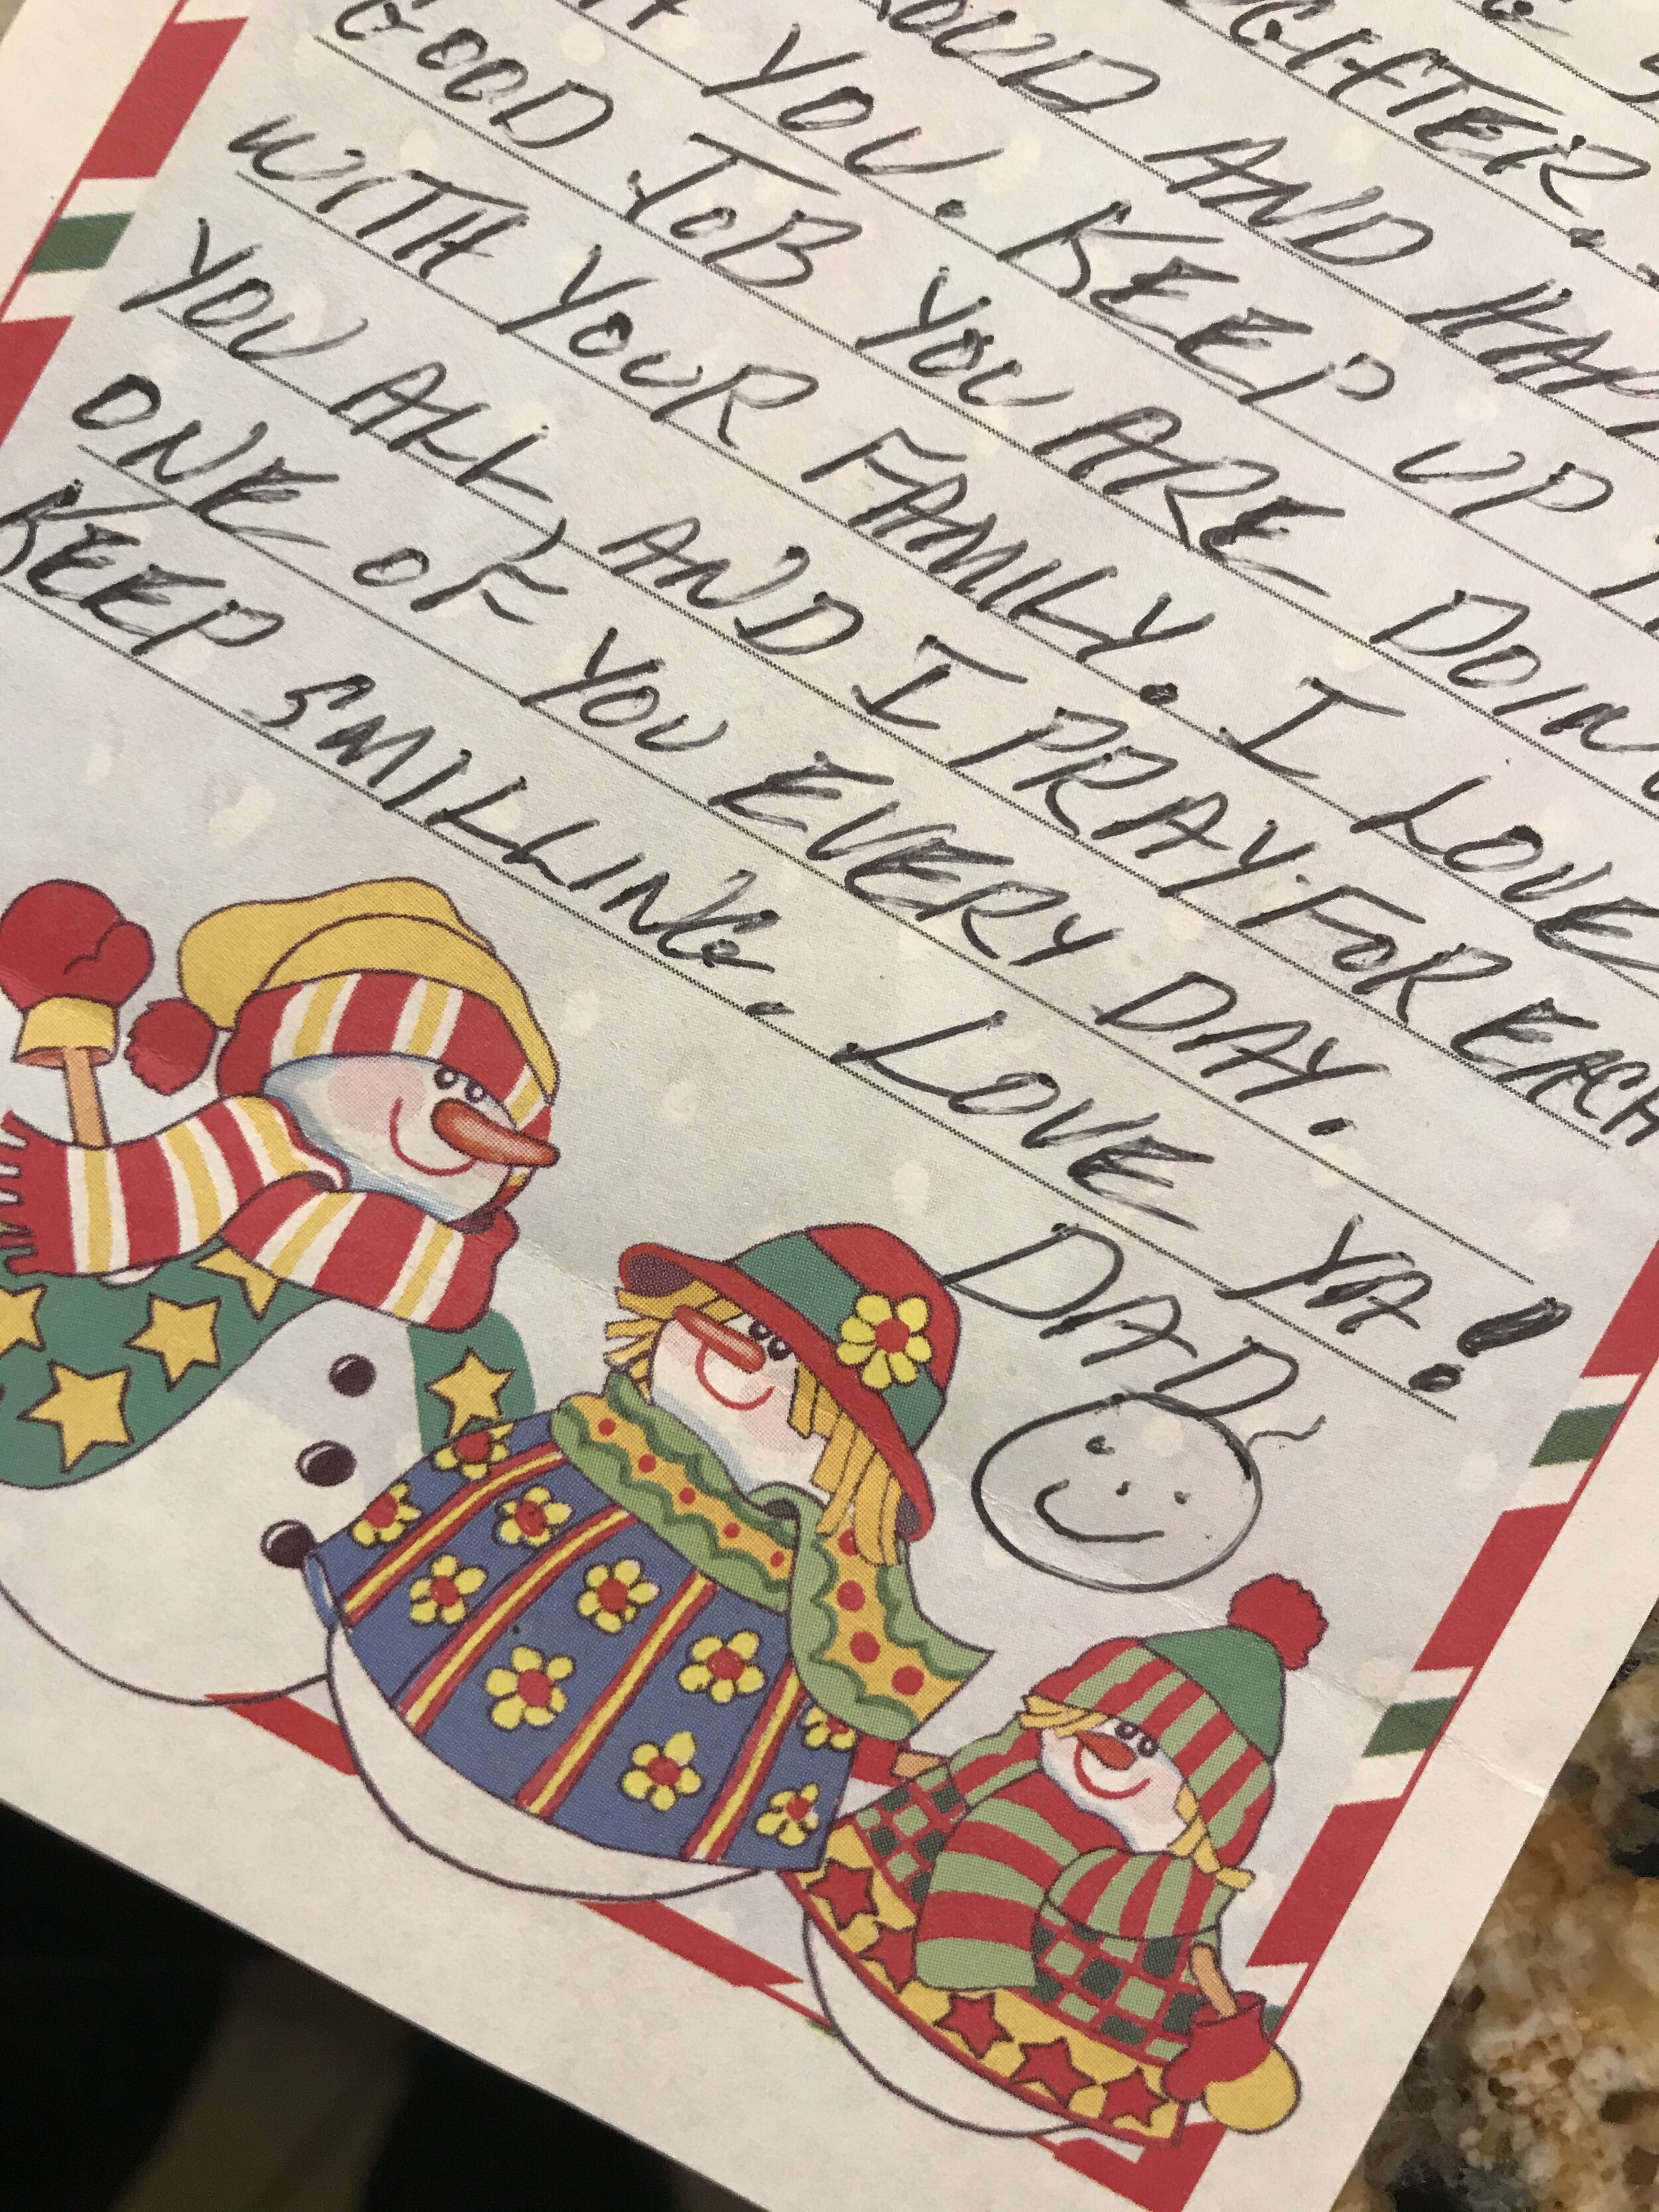 GHTER.
OUD AND HAP
H YOU. KEEP UP
GOOD JOB YOU ARE DOIN
WITH YOUR FAMILY. I LOVE
YOU ALL, AND I PRAY FOR EACH
ONE OF YOU EVERY DAY.
KEEP SMILLING. LOVE YA!
DAD